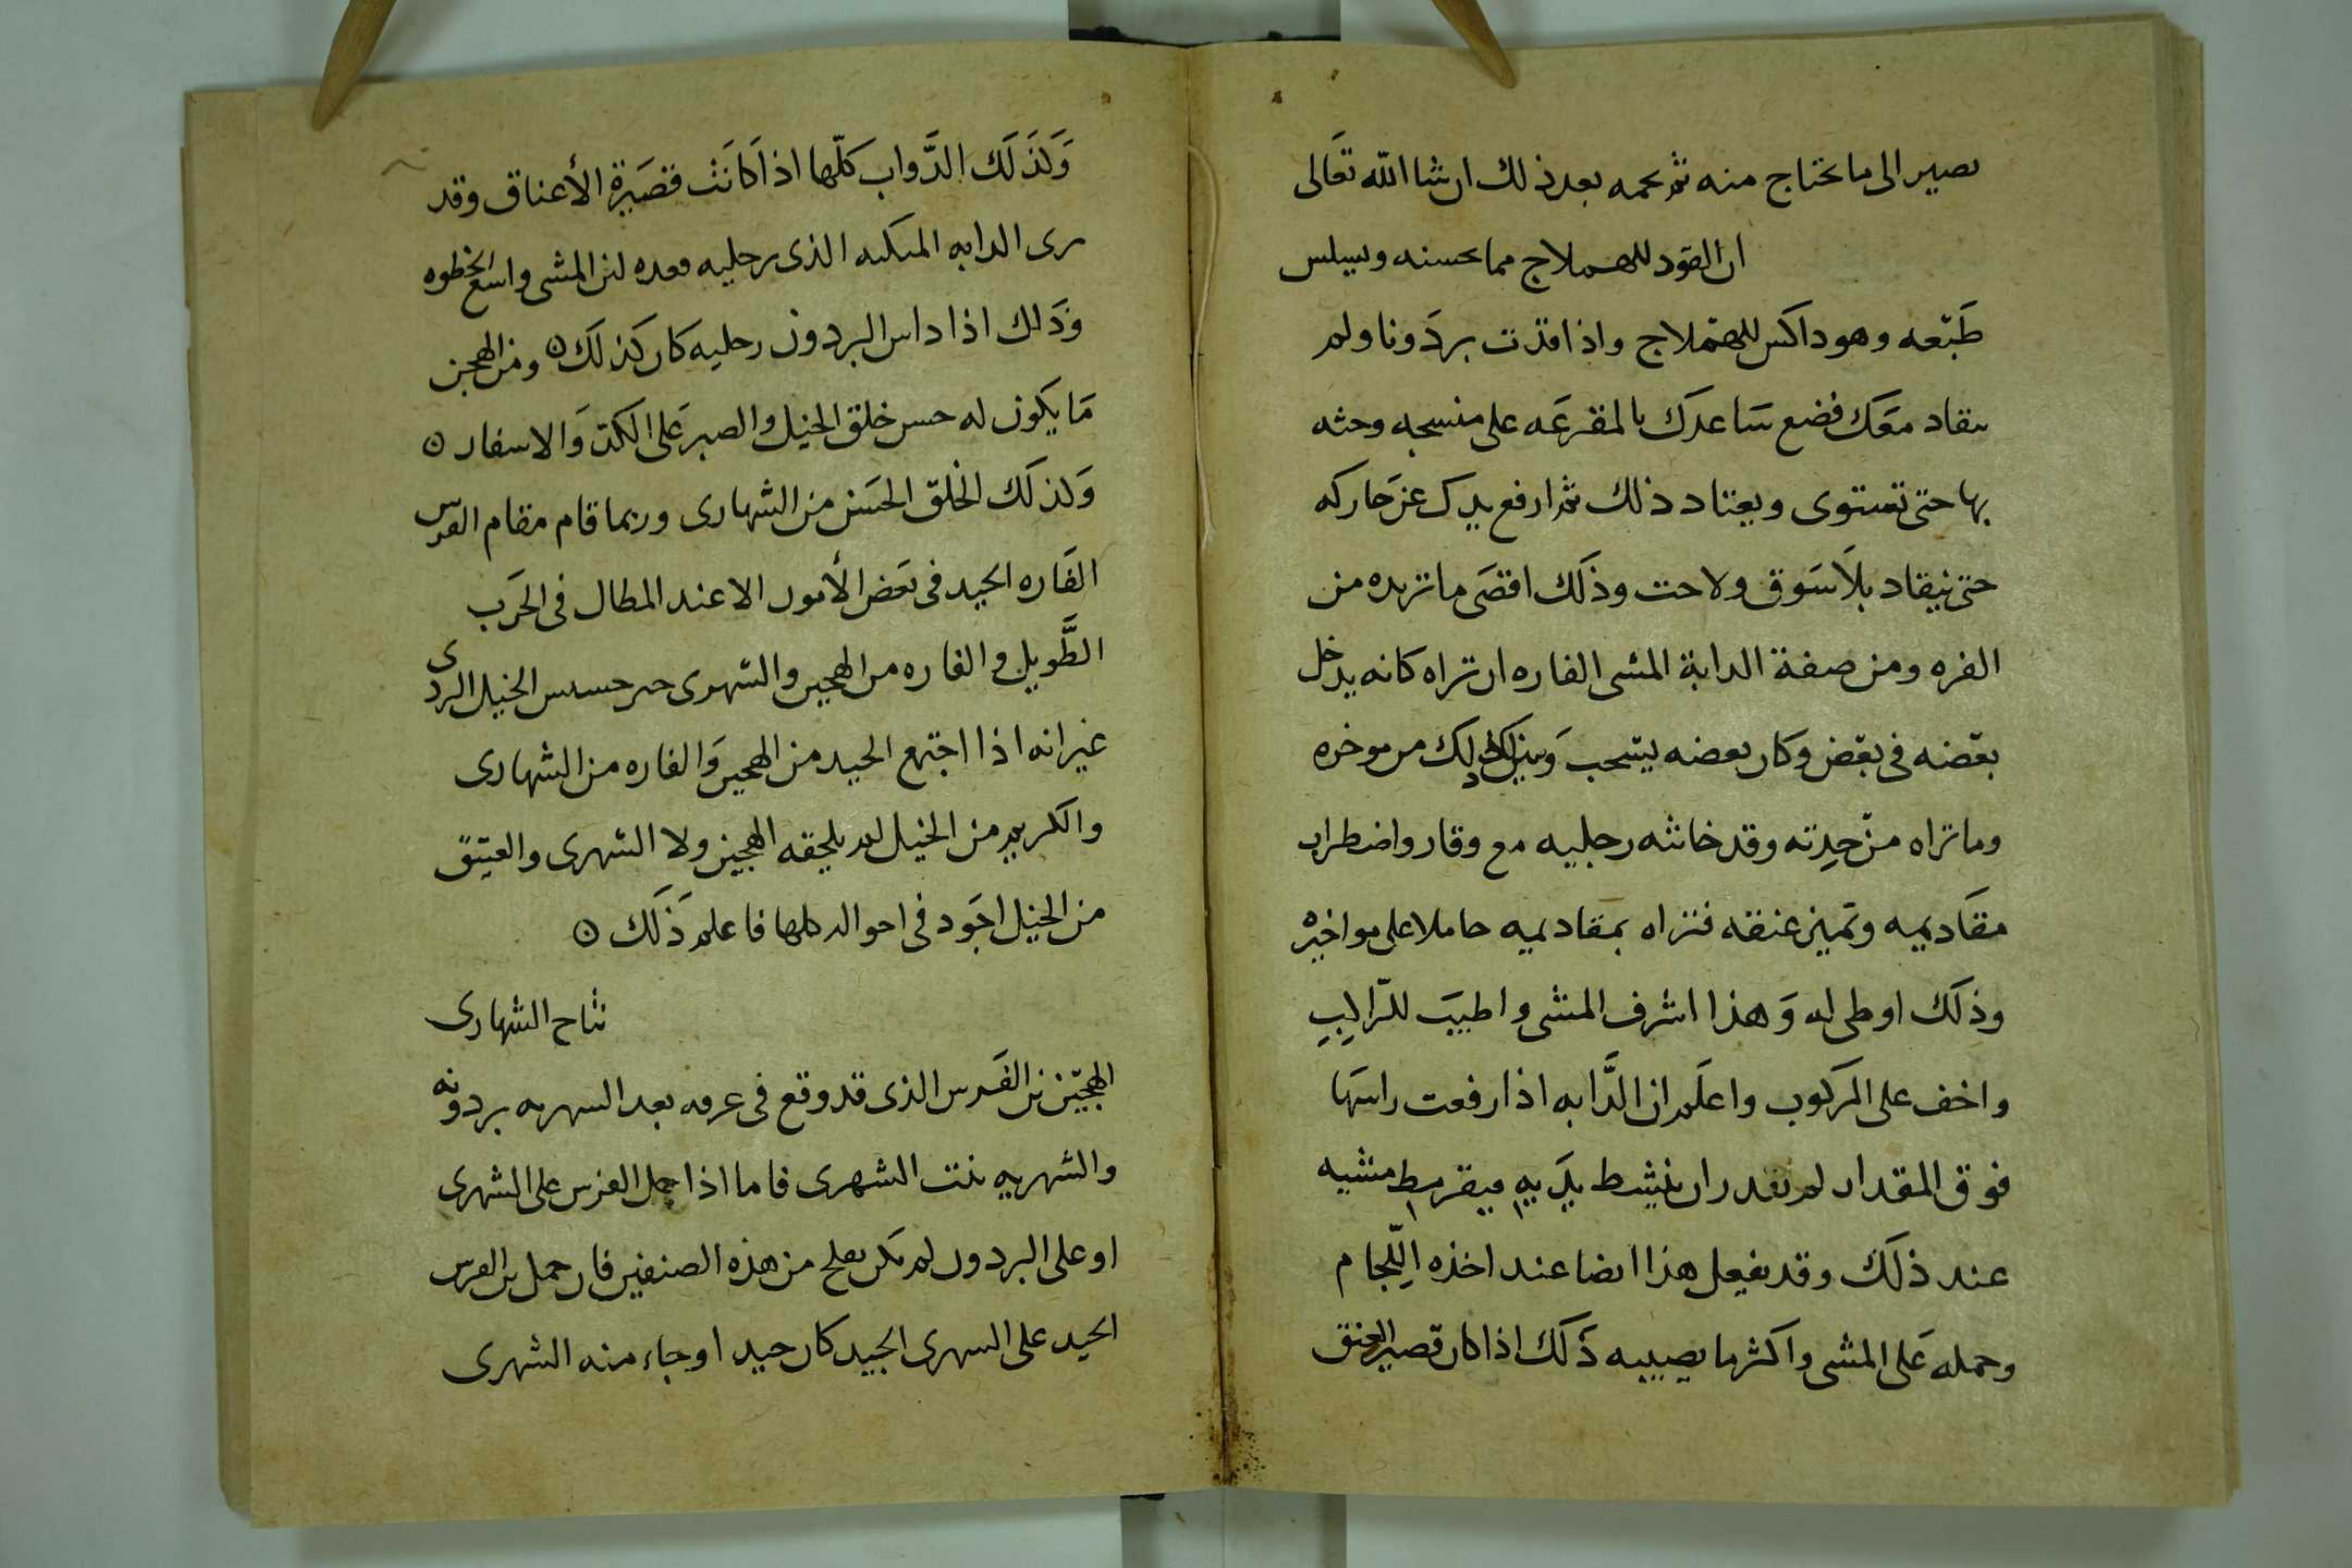 يصير الى ما تحتاج منه ثم تجمه بعد ذلك ان شا الله تعَالى
ان القود للهملاج مما يحسنه ويسلس
طَبْعه وهو داكس للهملاج واذا قدت بردَونا ولم
ينقاد معَك فضع سَاعدك بالمقرعَه على منسجه وحثه
بها حتى تستوى ويعتاد ذلك ثم ارفع يدك عن حَاركه
حتى ينقاد بلَا سَوق ولا حث وذلَك اقصَى ما تريده من
الفره ومن صفة الدابة المشى الفاره ان تراه كانه يدخل
بعْضه فى بعْض وكان بعضه ينسحب من موخره
وما تراه من حِدته وقد خانته رجليه مع وقار واضطراب
مقَاديميه عنقه فتراه بمقاديميه حاملا على مواخيره
وذلَك اوطى له وَهذا اشرف المشى واطيَب للرّاكِبِ
واخف على المَركوب واعلَم ان الدَّابه اذا رفعت راسَها
فوق المقدار لم تقدر ان ينشط يدَيه فيقرمط مشيه
عند ذلَك وقد يفعل هذا ايضا عند اخذه اللّجَام
وحمله عَلى المشى واكثر ما يصيبه ذَلَك اذا كان قصير العنق
وَلذَلَك الدَّواب كلّها اذا كَانَت قصَيرة الأعناق وقد
ترى الدابه الذى برجليه لين المشى واسع الخطوه
وذَلك اذا داس البردون رجليه كان كذلَك ۞ ومن الهجن
مَا يكون له حسن خلق الخيل والصبر عَلى الكدّ وَالاسفار ۞
وَلذلَك الخَلق الحسَن من الشهارى وربما قام مقام الفرس
الفَاره الجيد فى بعَض الأمور الا عند المطال فى الحَرب
الطَّويل والفاره من الهجين والشهرى خير من الخيل الردى
غير انه اذا اجتمع الجيد من الهجين وَالفاره من الشهارى
والكريم من الخيل لم يلحقه الهجين ولا الشهرى والعتيق
من الخيل اجَود فى احواله كلها فاعلم ذَلَك ۞
نتاج الشهارى
الهجيّن من الفَرس الذى قد وقع فى عرقه بعد الشهريه بردونه
والشهريه بنت الشهرى فاما اذا حمل الفرس على الشهرى
او على البردون لم يكن يفلح من هذه الصنفين فان حمل من الفرس
الجيد على الشهرى الجيد كان جيد او جاء منه الشهرى